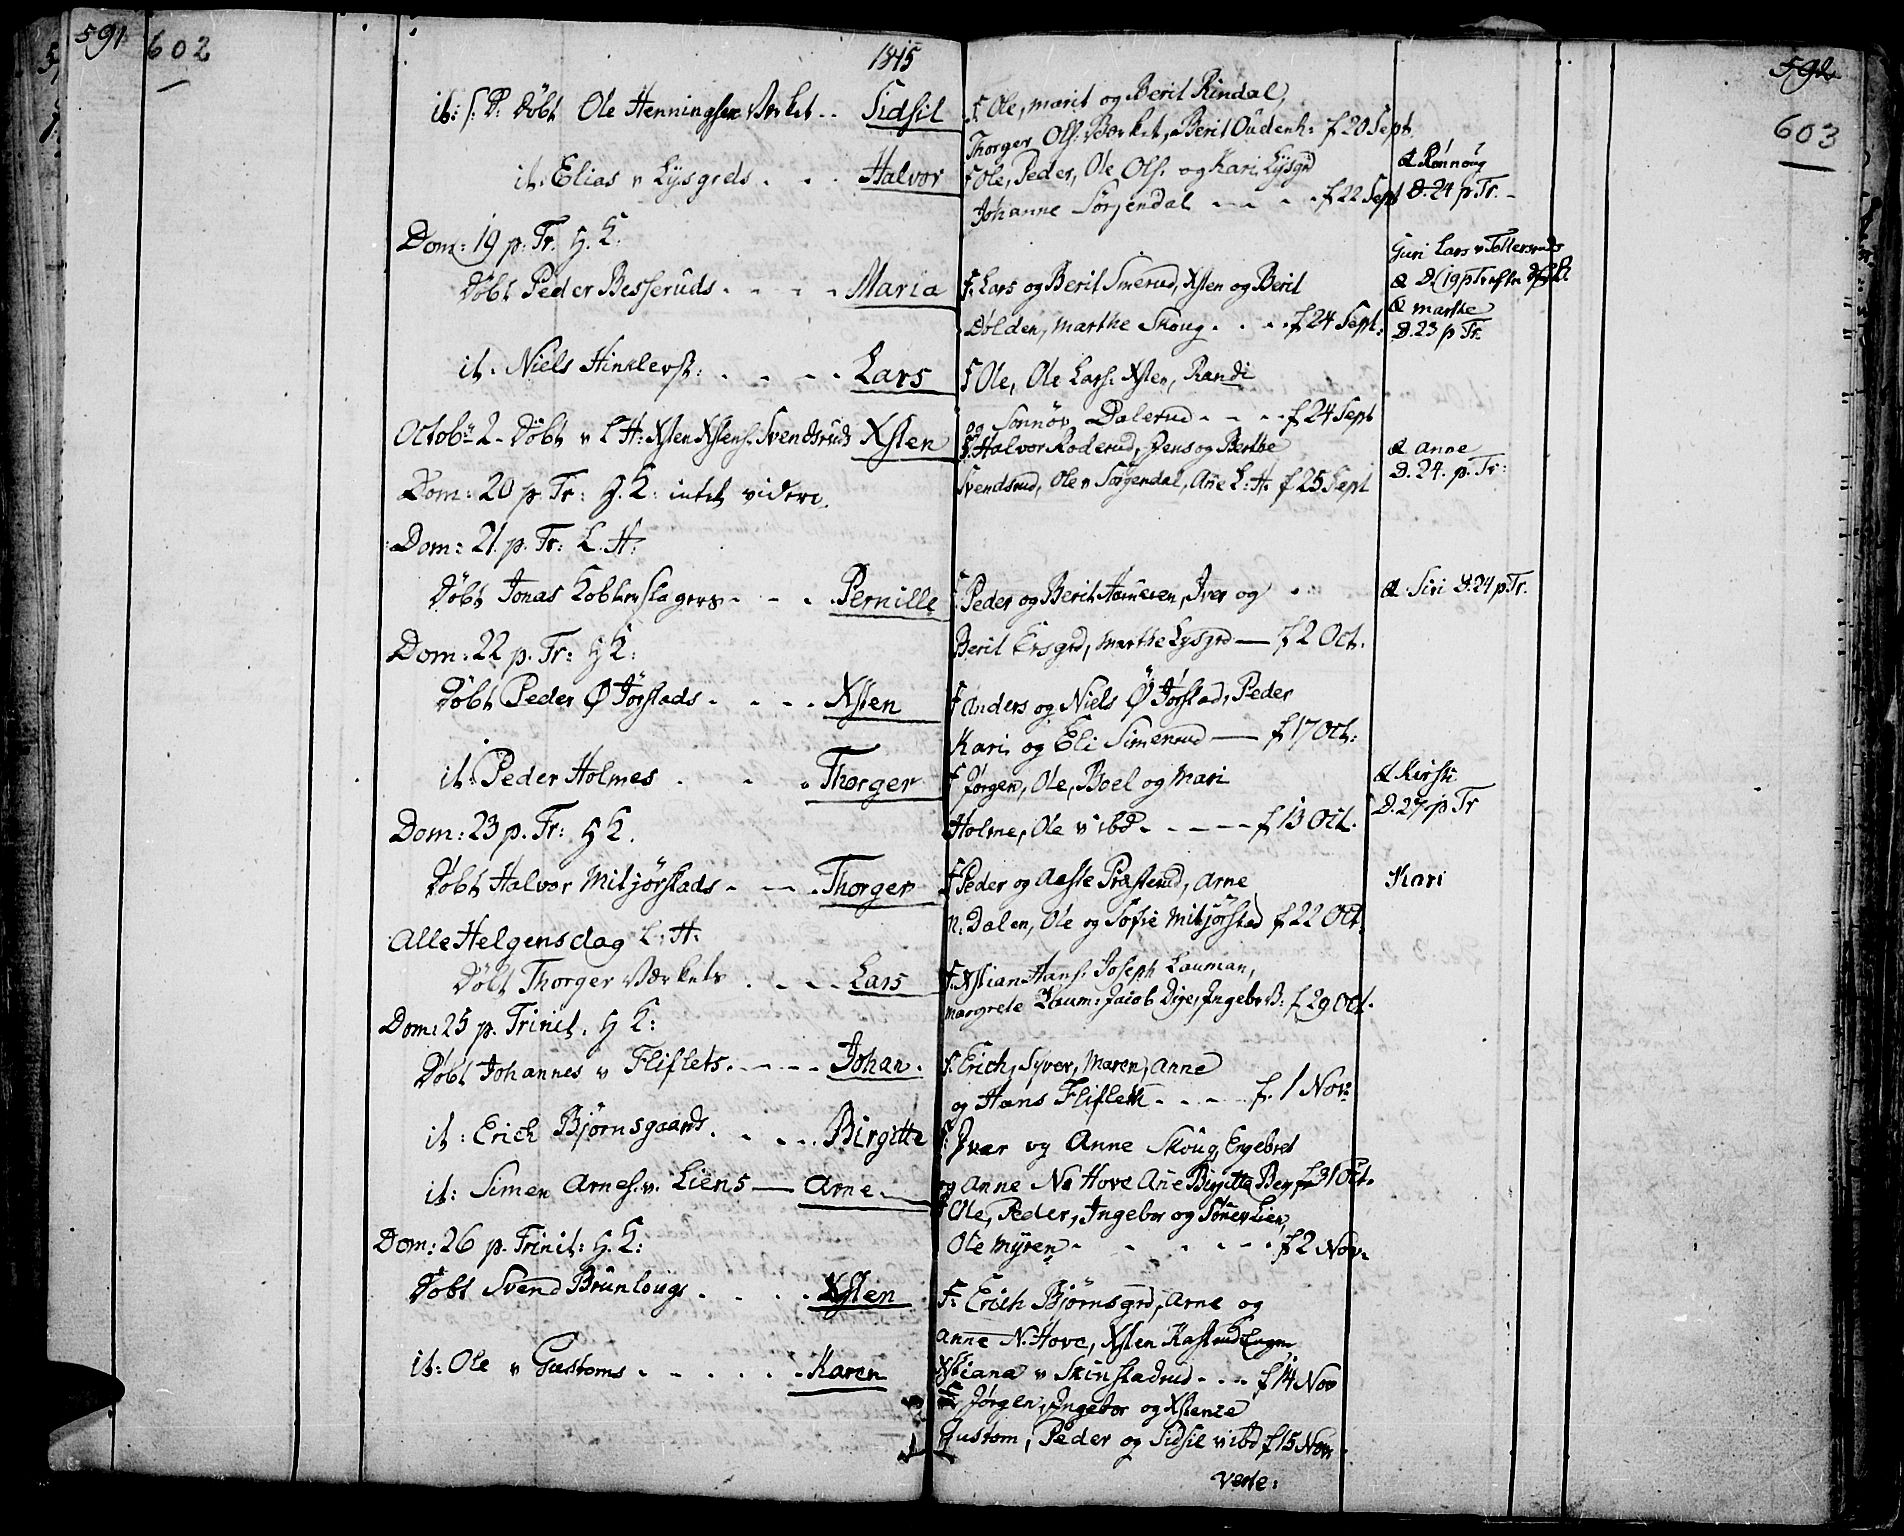 591 602
1815
592
603
it: S: D: Døbt Ole Henningsen Værket .. Sidsil
F Ole, Marit og Berit Rindal,
Thorger Ols: Værket, Berit Oudenh: f 20 Sept
it: Elias v Lysgrds . . . Halvor
F Ole, Peder, Ole Ols. og Kari Lysgrd
Johanne Sørjendal - - - - f 22 Sept
& Rønnoug
D. 24 p Tr. -
Dom: 19 p. Tr. H. K.
Døbt Peder Besseruds . - - - Maria
F. Lars og Berit Smerud, Xsten og Berit
Dølden, Marthe Skoug . . . f 24 Sept:
Guri Lars v Tollersruds
& marthe
D. 23 p Tr.
it. Niels Hinklevs: . - - - Lars
F Ole, Ole Lars. Xsten, Randi
og Sønnøv Dalerud - - - f 24 Sept
Octobr 2 - Døbt v L H: Xsten Xstens. Svendsruds Xsten
F. Halvor Roderud, Jens og Berthe
Svendsrud, Ole v Sørgendal, Ane L: H. f 25 Sept
& Anne
D. 24. p. Tr:
Dom: 20 p. Tr: H. K: intet videre.
Dom: 21. p. Tr: L. H:
Døbt Jonas Kobberslagers - - . Pernille
F. Peder og Berit, Iver og
Berit Ersgrd, Marthe Lysgrd — f 2 Oct.
& Siri D. 24 p Tr.
Dom: 22 p. Tr: H K:
Døbt Peder Ø Jørstads . - - . Xsten
F Anders og Niels Ø Jørstad, Peder
Kari og Eli Simensrud — f 17 Oct:
it: Peder Holmes . . - . Thorger
F Jørgen, Ole, Boel og Mari
Holme, Ole v ibd - - - - f 13 Oct.
& Kirsti
D. 27. p Tr
Dom: 23 p. Tr: H K.
Døbt Halvor Mitjørstads - - - . Thorger
F Peder og Aaste Præsterud, Arne
N. Dalen, Ole og Sofie Mitjørstad f 22 Oct.
Kari
Alle Helgens dag L. H:
Døbt Thorger Værkets . . - - Lars
F. Xstian Hans. Joseph Lauman,
Margrete Laum: Jacob Dige, Ingebr B: f 29 Oct.
Dom: 25 p. Trinit. H K:
Døbt Johannes v Fliflets . - - - - Johan.
F. Erich, Syver, Maren, Anne
og Hans Fliflett - - - f. 1 Nov:
it: Erich Bjørnsgaards . . . . Birgitte
F: Iver og Anne Skoug, Engebret
og Anne No Hove Ane Birgitta Berg f 31 Oct.
it: Simen Arnes. v. Liens — Arne
F Ole, Peder, Ingebor og Sønev Lien,
Ole Myren - - - - - f 2 Nov.
Dom: 26 p. Trinit: H. K:
Døbt Svend Brunlougs . . . . Xsten
F. Erich Bjørnsgrd, Arne og
Anne N. Hove, Xsten Kastrud
Xstiana v Skinstadrud - - - f 14 Nov
it: Ole v Gustoms . - . . - . Karen
F. Jørgen, Ingebor og Xstenze
Gustom, Peder og Sidsil v ibd f 15 Nov
Verte: